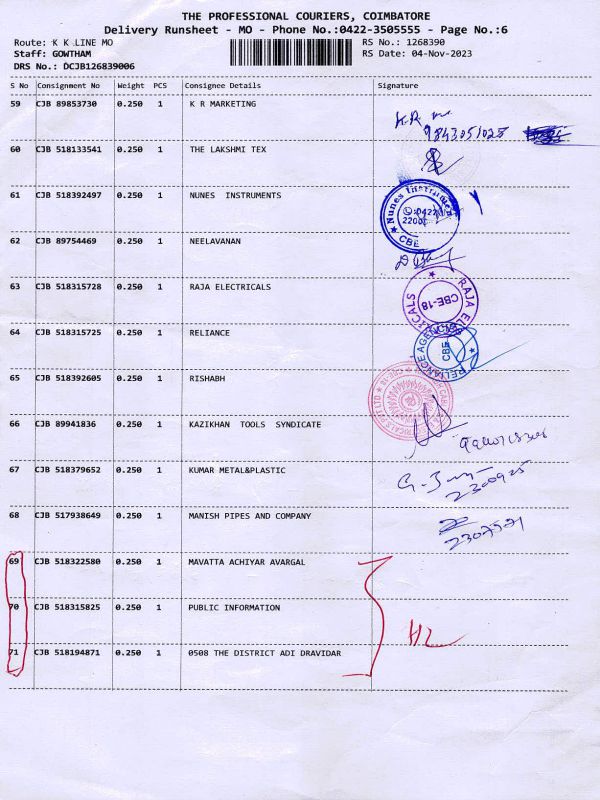 THE PROFESSIONAL COURIERS, COIMBATORE
Delivery Runsheet - MO - Phone No.:0422-3505555 - Page No.:6
Route: K K LINE MO RS No.: 1268390
Staff: GOWTHAM RS Date: 04-Nov-2023
DRS No.: DCJB126839006
S No Consignment No Weight PCS Consignee Details Signature
59 CJB 89853730 0.250 1 K R MARKETING
K.R.
9843051025
60 CJB 518133541 0.250 1 THE LAKSHMI TEX
61 CJB 518392497 0.250 1 NUNES INSTRUMENTS
Nunes Instruments
CBE
62 CJB 89754469 0.250 1 NEELAVANAN
63 CJB 518315728 0.250 1 RAJA ELECTRICALS
RAJA ELECTRICALS
CBE-18
64 CJB 518315725 0.250 1 RELIANCE
RELIANCE AGENCIES
CBE
65 CJB 518392605 0.250 1 RISHABH
66 CJB 89941836 0.250 1 KAZIKHAN TOOLS SYNDICATE
67 CJB 518379652 0.250 1 KUMAR METAL&PLASTIC
2300925
68 CJB 517938649 0.250 1 MANISH PIPES AND COMPANY
2307521
69 CJB 518322580 0.250 1 MAVATTA ACHIYAR AVARGAL
70 CJB 518315825 0.250 1 PUBLIC INFORMATION
71 CJB 518194871 0.250 1 0508 THE DISTRICT ADI DRAVIDAR